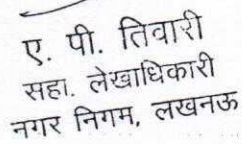 ए. पी. तिवारी
सहा. लेखाधिकारी
नगर निगम, लखनऊ